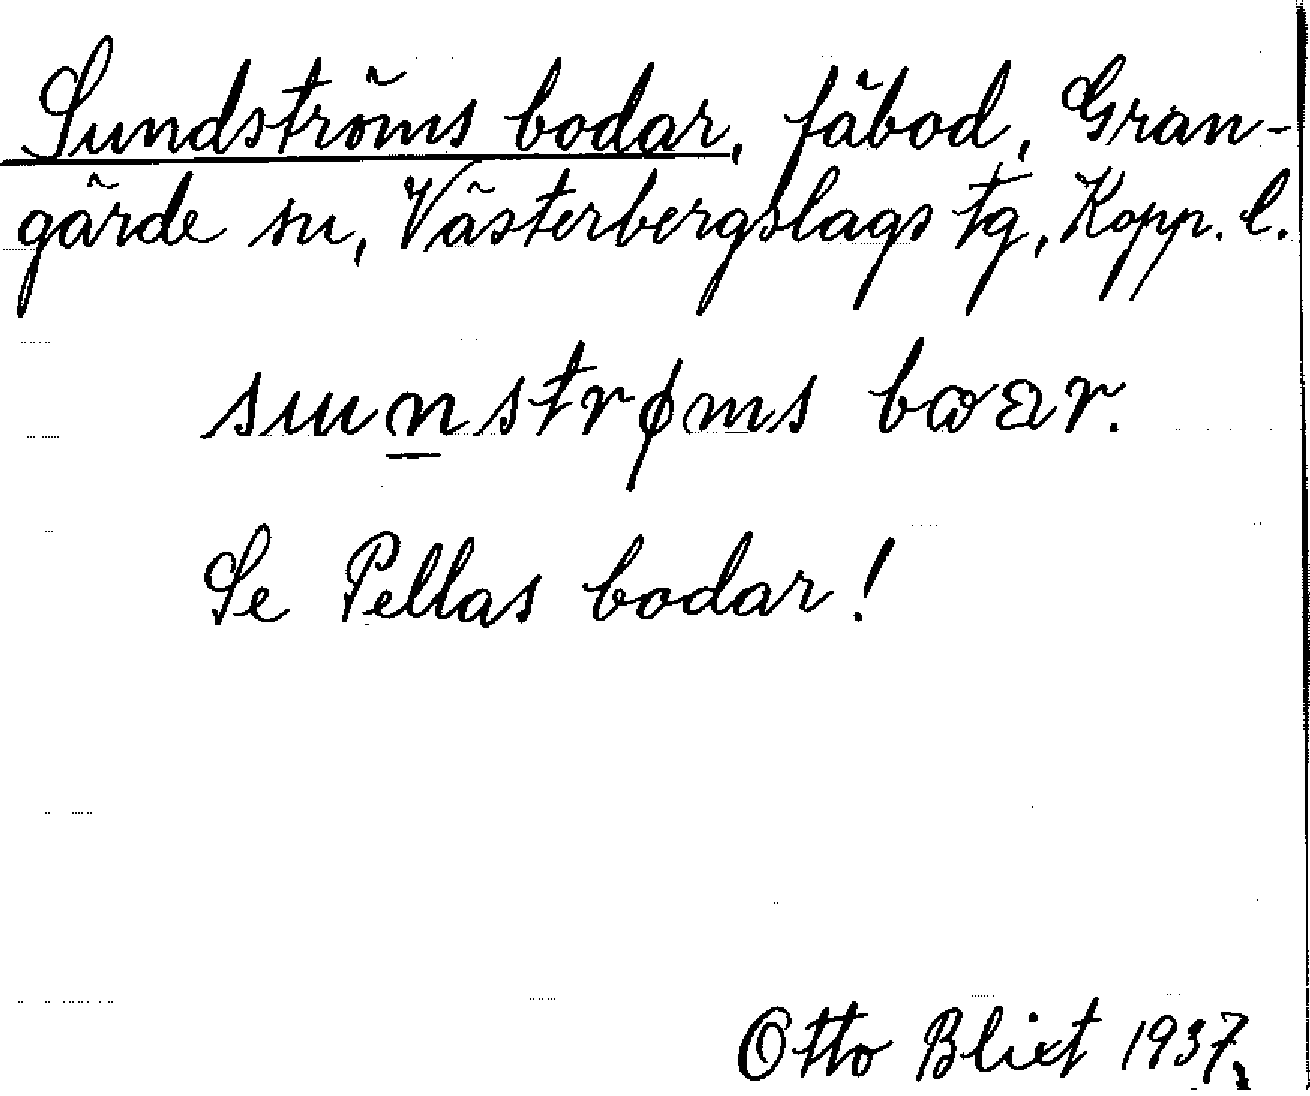 Sundströms bodar, fäbod, Gran-
gärde sn, Västerbergslags tg, Kopp. l.
sunstrøms boar.
Se Pellas bodar!
Otto Blixt 1937.